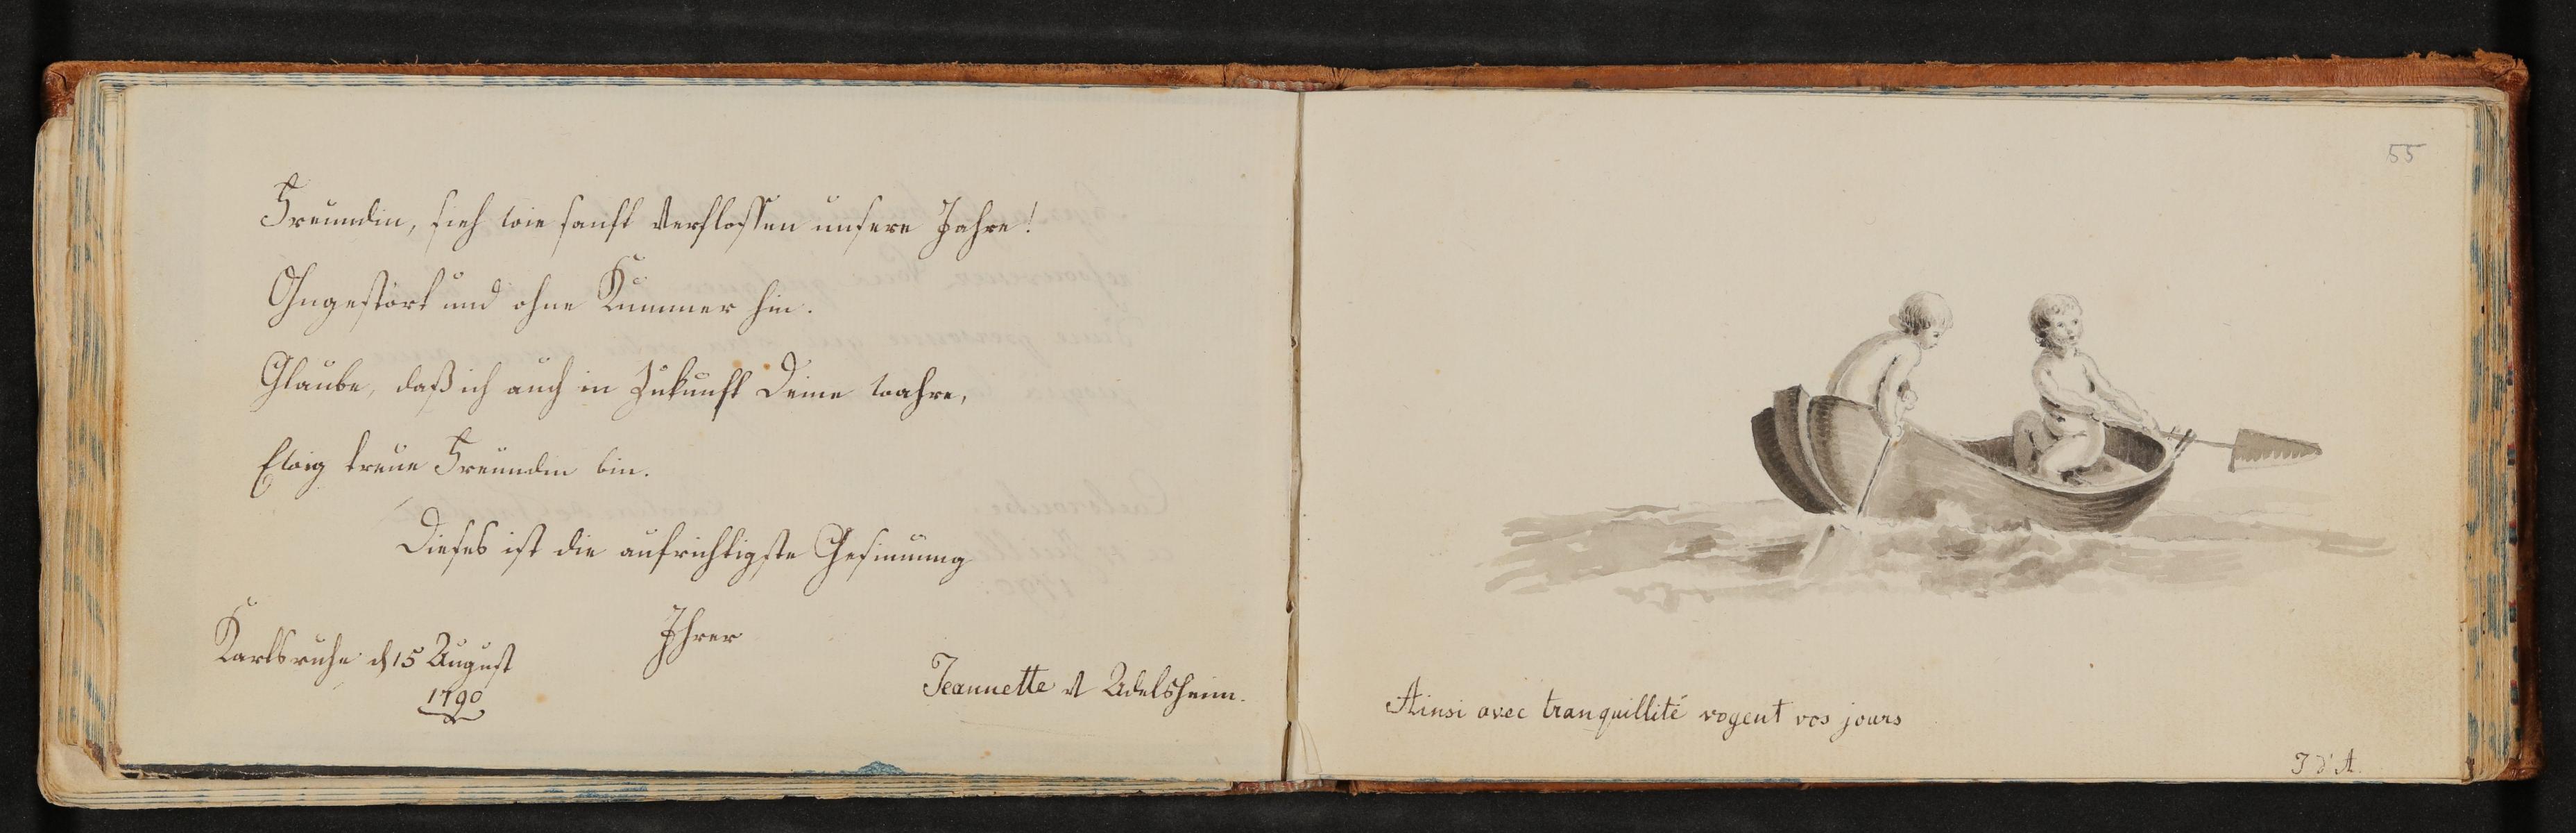 Freundin, sieh wie sanft verflossen unsere Jahre!
Ohngestört und ohne Kummer hin.
Glaube, daß ich auch in Zukunft Deine wahre,
Ewig treue Freundin bin.
Dieses ist die aufrichtigste Gesinnung
Ihrer
Karlsruhe d 15 August
1790
Jeannette v Adelsheim.
55
Ainsi avec tranquillité vogent vos jours
J d'A.